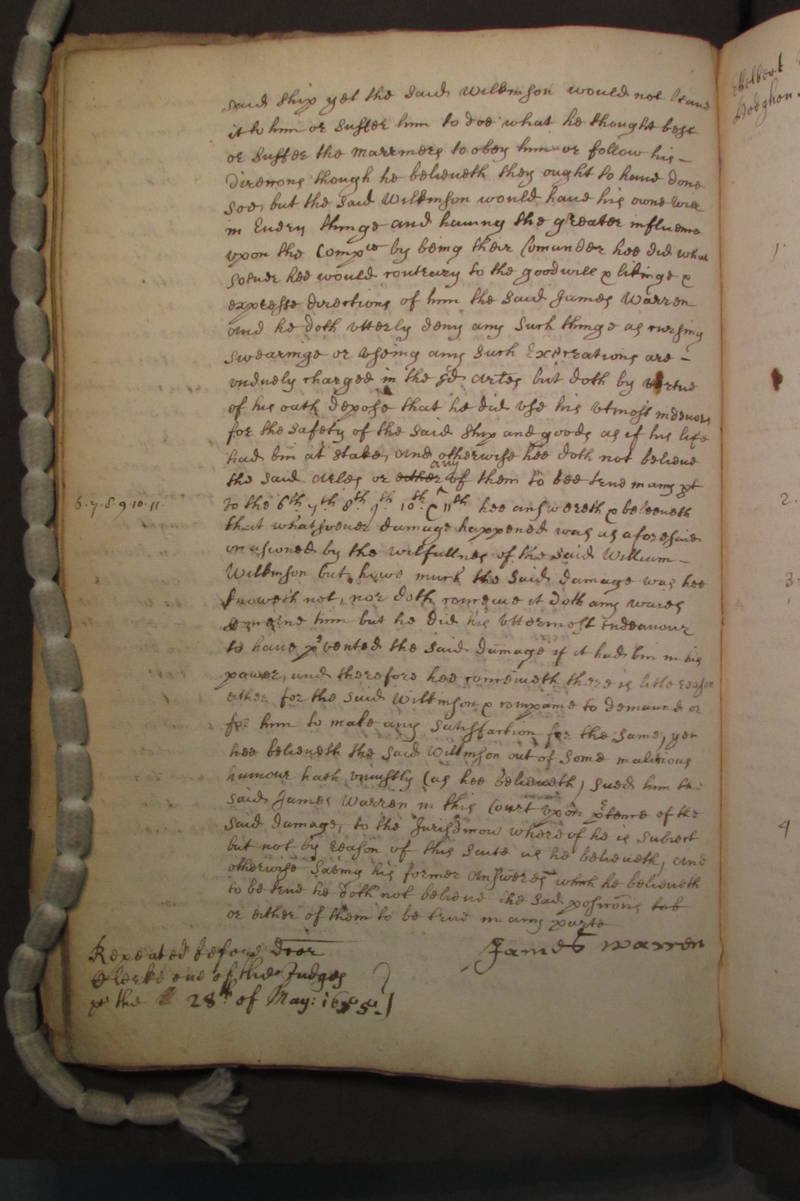 said ship yet the said Wilkinson would not leave
it to him or suffer him to doe what he thought best
or suffer the marriners to obey him or follow his -
direcions though he believeth they ought to have done
soe, but the said Wilkinson would have his owne will
in Every thinge and having the greater influence
upon the Compie by being their Comander hee did what
soever hee would contrary to the goodwill & likinge &
expresse direcions of him the said James Warren
and he doth utterly deny any such thinge as cursing
swearinge or useing any such Execrations are -
unduely charged in the sd artles but doth by virtue
of his oath depose that he did use his utmost indeavors
for the safety of the said ship and goods as if his life
had bin at stake, and otherwise hee doth not believe
the said arles or either any of them to bee true in any pt
6. 7. 8. 9. 10. 11
to the 6th 7th 8th 9th 10th & 11th hee answereth & beleeveth
that whatsoever damage happened was as aforesaid
occasioned by the wilfullnes of the said William -
Wilkinson but howe much the said damage was hee
knoweth not, nor doth conceive it doth any waies
concerne him but he did his uttermost indeavour
to have pvented the said damage if it had bin in his
power, and therefore hee conceiveth there is litle reason
either for the said Wilkinson & companie to demand or
for him to make any satisfaction for the same, yet
hee believeth the said Wilkinson out of some malitious
humour hath uniustly (as hee believeth) sued him the
said James Warren in this Court upon ptence of the
said damage, to the Jurisdicion whereof he is subiect
but not by reason of this suite as he believeth, and
otherwise saving his former answeres which he believeth
to be true he doth not believe the said posicions
or either of them to be true in any parte
James Warren
Repeated before Dcor
Clerke one of the Judges
the 28th of May: 1655
Holbert